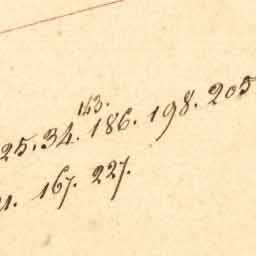 143.
25. 34. 186. 198. 205
1. 167. 227.